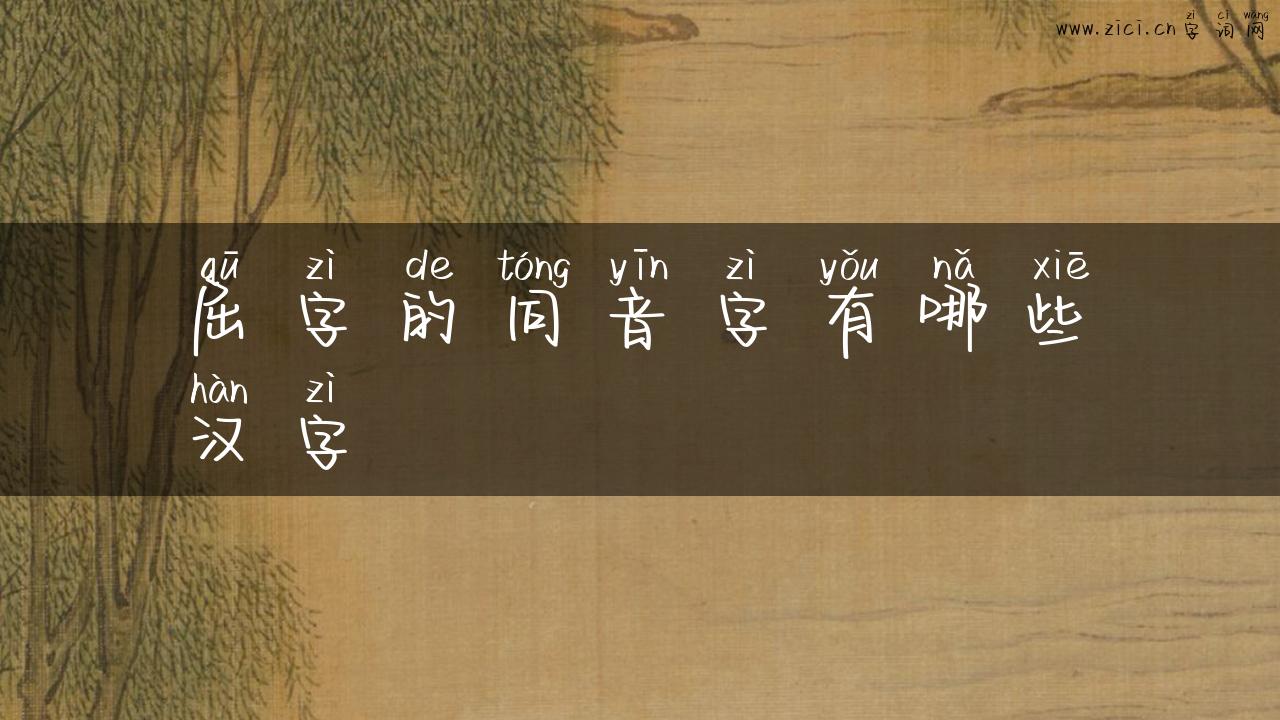 zì cí wǎng
www.zici.cn 字词网
qū zì de tóng yīn zì yǒu nǎ xiē
屈字的同音字有哪些
hàn zì
汉字